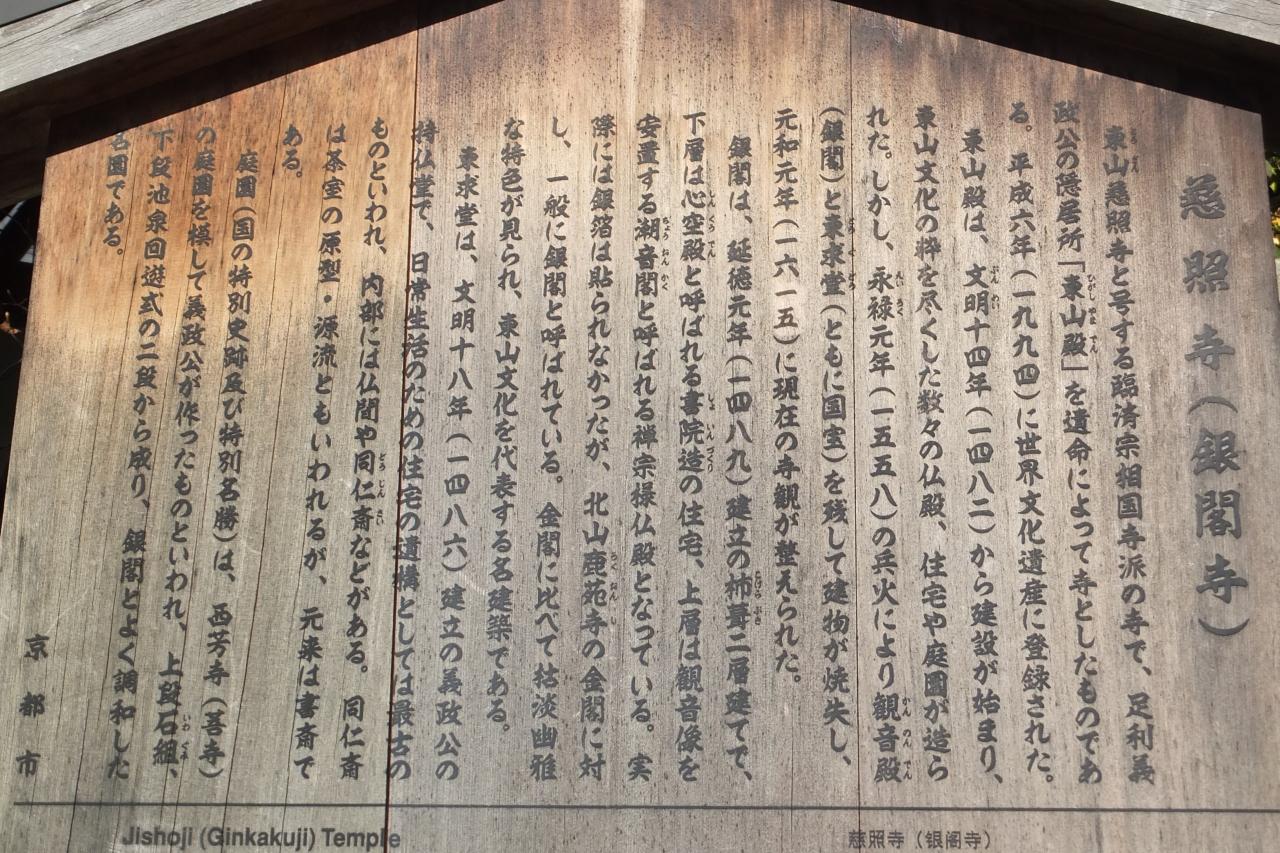 慈照寺(銀閣寺)
東山慈照寺と号する臨済宗相国寺派の寺で、足利義
政公の隠居所「東山殿」を遺命によって寺としたものであ
る。平成六年(一九九四)に世界文化遺産に登録された。
東山殿は、文明十四年(一四八二)から建設が始まり、
東山文化の粋を尽くした数々の仏殿、住宅や庭園が造ら
れた。しかし、永禄元年(一五五八)の兵火により観音殿
(銀閣)と東求堂(ともに国宝)を残して建物が焼失し、
元和元年(一六一五)に現在の寺観が整えられた。
銀閣は、延徳元年(一四八九)建立の柿葺二層建てで、
下層は心空殿と呼ばれる書院造の住宅、上層は観音像を
安置する潮音閣と呼ばれる禅宗様仏殿となっている。実
際には銀箔は貼られなかったが、北山鹿苑寺の金閣に対
し、一般に銀閣と呼ばれている。金閣に比べて枯淡幽雅
な特色が見られ、東山文化を代表する名建築である。
東求堂は、文明十八年(一四八六)建立の義政公の
持仏堂で、日常生活のための住宅の遺構としては最古の
ものといわれ、内部には仏間や同仁斎などがある。同仁斎
は茶室の原型・源流ともいわれるが、元来は書斎で
ある。
庭園(国の特別史跡及び特別名勝)は、西芳寺(苔寺)
の庭園を模して義政公が作ったものといわれ、上段石組、
下段池泉回遊式の二段から成り、銀閣とよく調和した
名園である。
京都市
Jishoji (Ginkakuji) Temple
慈照寺（银阁寺）